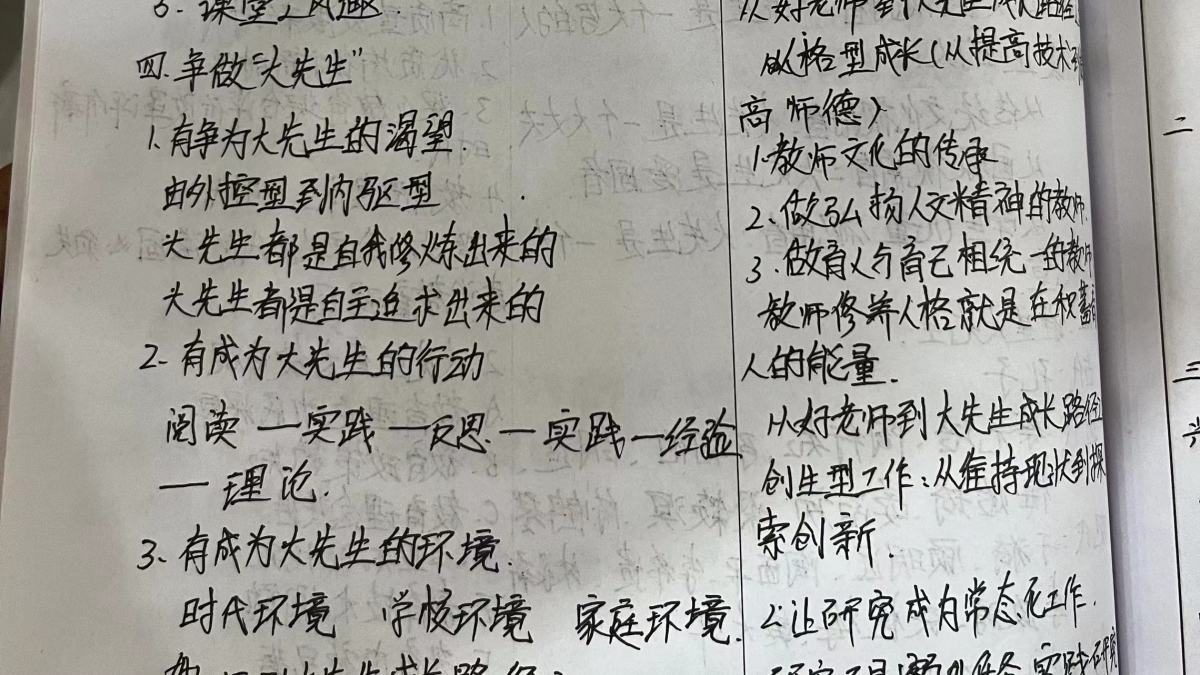 6. 课堂上风趣.
四. 争做“大先生”
1. 有争为大先生的渴望.
由外控型到内驱型.
大先生都是自我修炼出来的
大先生都是自主追求出来的
2. 有成为大先生的行动
阅读 — 实践 — 反思 — 实践 — 经验
— 理论.
3. 有成为大先生的环境.
时代环境 学校环境 家庭环境.
从好老师到大先生成长路径
人格型成长(从提高技术到
高师德)
1. 教师文化的传承
2. 做弘扬人文精神的教师.
3. 做育人与育己相统一的教师
教师修养人格就是在积蓄育
人的能量.
从好老师到大先生成长路径
创生型工作:从维持现状到探
索创新.
2. 让研究成为常态化工作.
二
三